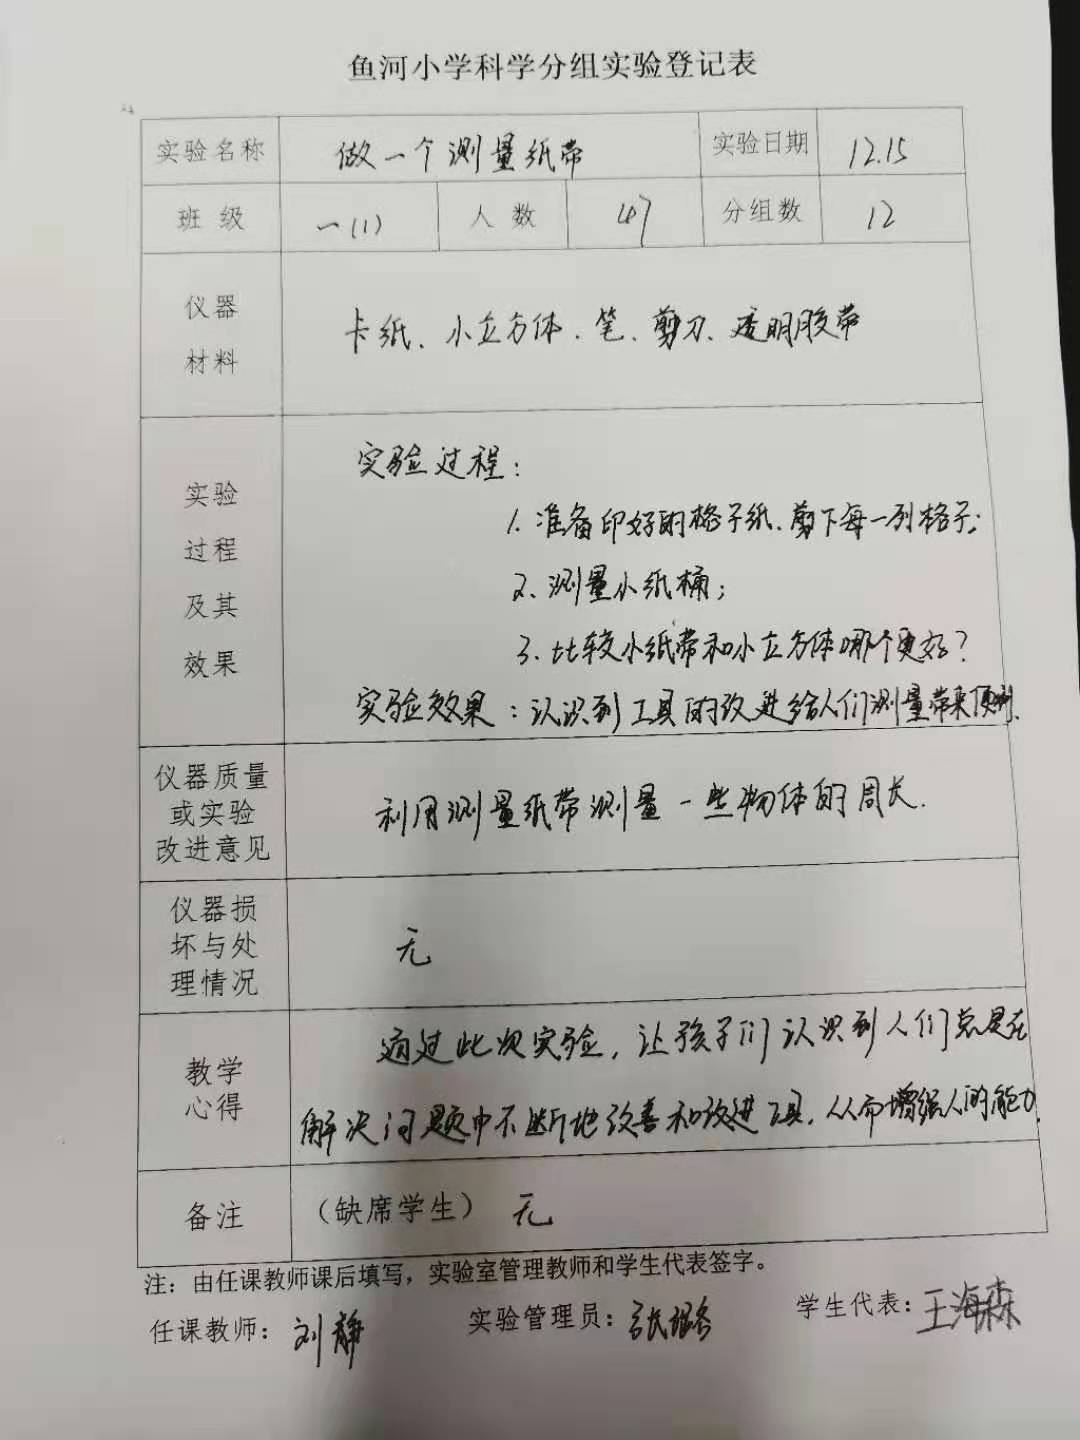 鱼河小学科学分组实验登记表
实验名称 做一个测量纸带 实验日期 12.15
班 级 一(1) 人 数 47 分组数 12
仪器
材料
卡纸、小立方体、笔、剪刀、透明胶带
实验
过程
及其
效果
实验过程:
1. 准备印好的格子纸、剪下每一列格子;
2、测量小纸桶;
3. 比较小纸带和小立方体哪个更好?
实验效果:认识到工具的改进给人们测量带来便利.
仪器质量
或实验
改进意见
利用测量纸带测量一些物体的周长.
仪器损
坏与处
理情况
无
教学
心得
通过此次实验,让孩子们认识到人们总是在
解决问题中不断地改善和改进工具,从而增强人的能力.
备注 (缺席学生) 无
注:由任课教师课后填写,实验室管理教师和学生代表签字。
任课教师:刘静 实验管理员: 学生代表:王海森